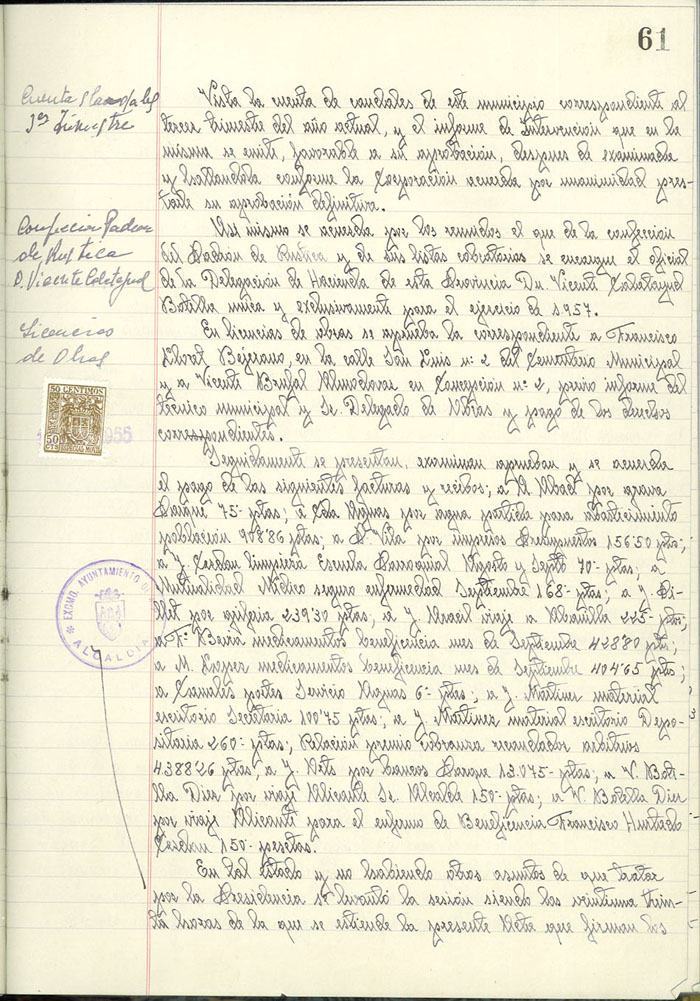 61
Cuenta Caudales
3er Trimestre
Vista la cuenta de caudales de este municipio correspondiente al
tercer trimestre del año actual, y el informe de Intervención que en la
misma se emite, favorable a su aprobación, despues de examinada
y hallandola conforme la Corporación acuerda por unanimidad pres-
tarle su aprobación definitiva.
Confección Padron
de Rustica
D. Vicente Calatayud
Asi mismo se acuerda por los reunidos el que de la confeccion
del Padrón de Rustica y de sus listas cobratorias se encargue el oficial
de la Delegación de Hacienda de esta Provincia Dn. Vicente Calatayud
Botella unica y exclusivamente para el ejercicio de 1957.
Licencias
de Obras
En licencias de obras se aprueba la correspondiente a Francisco
Llorat Bejerano, en la calle San Luis nº 2 del Cementerio Municipal
y a Vicente Brufal Almodovar en Concepción nº 2, previo informe del
técnico municipal y Sr. Delegado de Obras y pago de los derechos
correspondientes.
50 CENTIMOS
50 CTS
ESPECIAL MOVIL
1955
Seguidamente se presentan, examinan aprueban y se acuerda
el pago de las siguientes facturas y recibos; a M Abad por grava
Parque 75- ptas; a Cia Aguas por agua partida para abastecimiento
población 908'86 ptas; a Vª Vila por impresos Presupuestos 156'50 ptas;
a J. Cerdan limpieza Escuela Parroquial Agosto y Septb 70- ptas; a
Mutualidad Médico seguro enfermedad Septiembre 168- ptas; a J. Di-
llet por grifería 239'30 ptas; a J. Aracil viaje a Abanilla 225- ptas;
a Fº Berná medicamentos beneficencia mes de Septiembre 428'80 ptas;
a M. Lozper medicamentos beneficencia mes de Septiembre 404'65 ptas;
a Canales portes Servicio Aguas 6- ptas; a J. Martinez material
escritorio Secretaria 100'75 ptas; a J. Martinez material escritorio Depo-
sitaria 260- ptas; Relación premio cobranza recaudados arbitrios
4388'26 ptas; a J. Vets por bancos Parque 13.075- ptas; a V. Bote-
lla Diez por viaje Alicante Sr. Alcalde 150- ptas; a V. Botella Diez
por viaje Alicante para el enfermo de Beneficencia Francisco Hurtado
Cerdan 150- pesetas.
EXCMO. AYUNTAMIENTO DE
ALCALDIA
En tal estado y no habiendo otros asuntos de que tratar
por la Presidencia se levantó la sesión siendo las veintiuna trein-
ta horas de la que se extiende la presente Acta que firman los